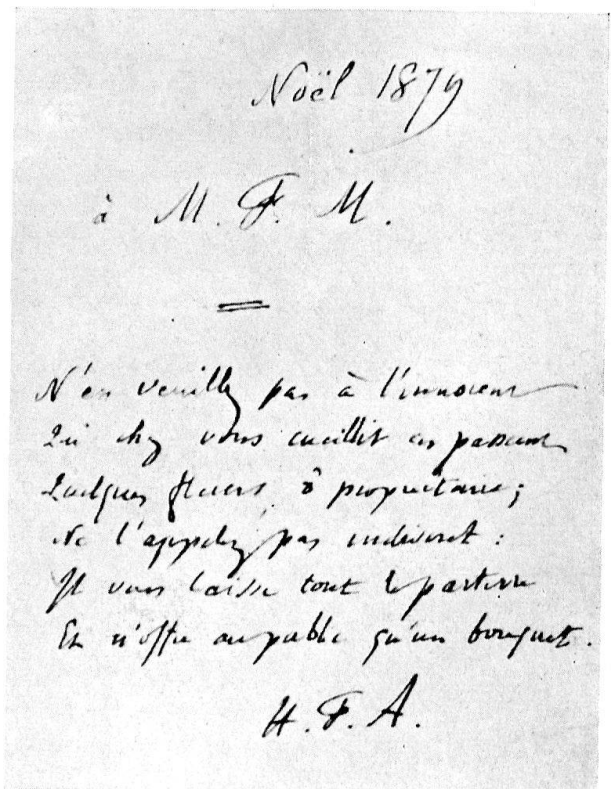 Noël 1879
à M. F. M.
N'en veuillez pas à l'innocent
Qui chez vous cueillit en passant
Quelques fleurs ô propriétaire;
Ne l'appelez pas indiscret :
Il vous laisse tout le parterre
Et n'offre au public qu'un bouquet.
H. F. A.